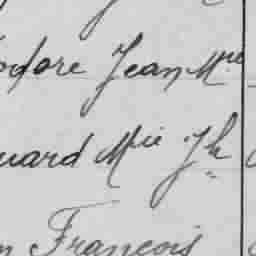 odore Jean Mie
uard Mie Jh
n François